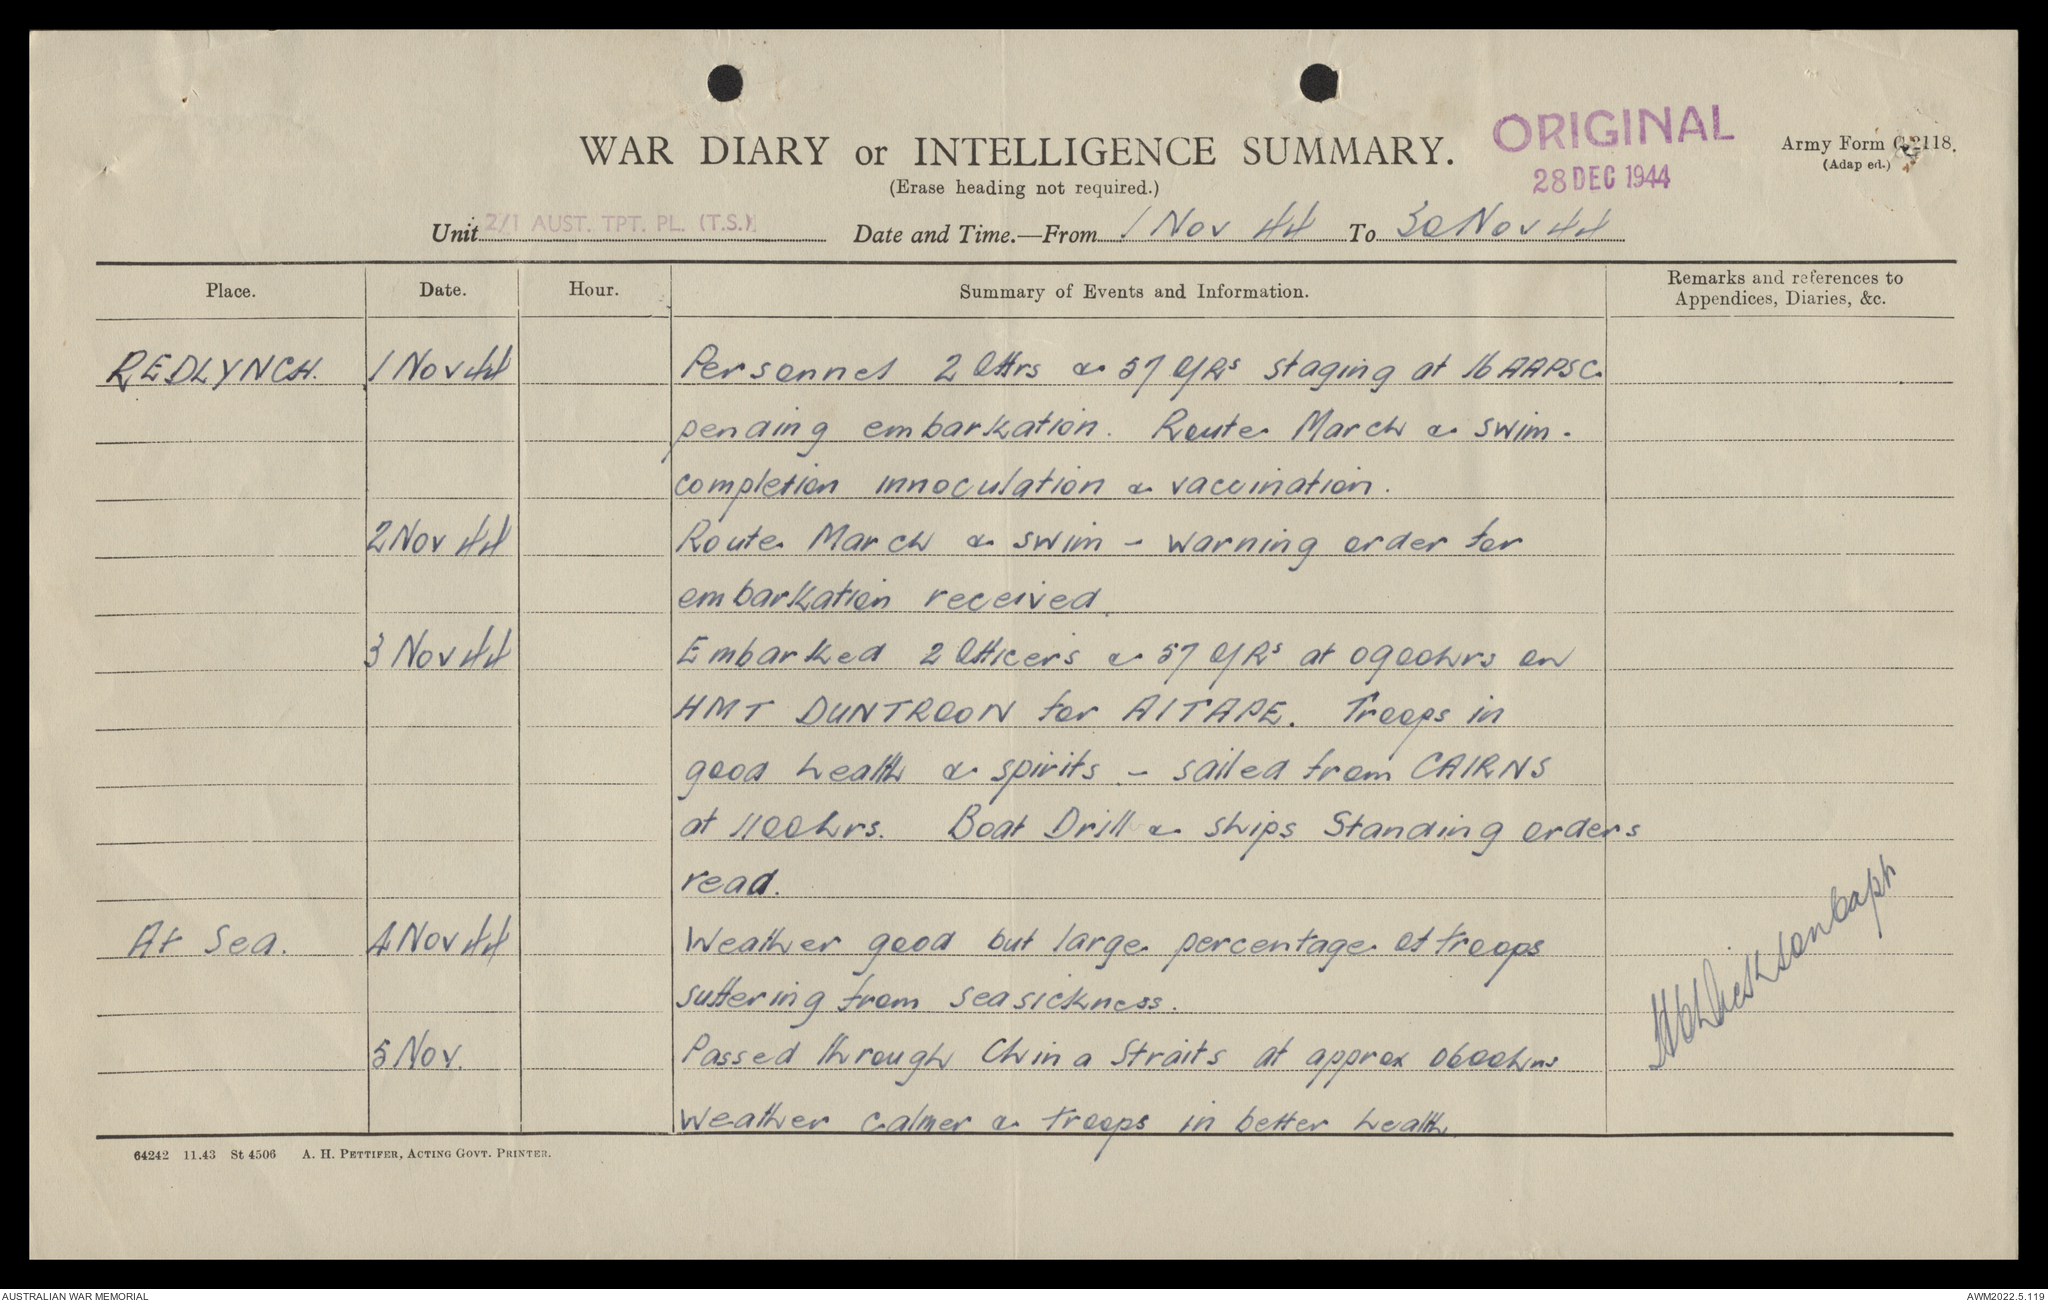 WAR DIARY or INTELLIGENCE SUMMARY.
(Erase heading not required.)
ORIGINAL
28 DEC 1944
Army Form C.2118.
(Adap ed.)
Unit 2/1 AUST. TPT. PL. (T.S.) Date and Time.—From 1 Nov 44 To 30 Nov 44
Place. Date. Hour. Summary of Events and Information. Remarks and references to
Appendices, Diaries, &c.
REDLYNCH. 1 Nov 44 Personnel 2 Offrs & 57 O/Rs staging at 16 AAPSC.
pending embarkation. Route March & swim.
completion innoculation & vaccination.
2 Nov 44 Route March & swim – warning order for
embarkation received.
3 Nov 44 Embarked 2 Officers & 57 O/Rs at 0900hrs on
HMT DUNTROON for AITAPE. Troops in
good health & spirits – sailed from CAIRNS
at 1100hrs. Boat Drill & ships Standing orders
read.
At Sea. 4 Nov 44 Weather good but large percentage of troops
suffering from seasickness.
5 Nov. Passed through China Straits at approx 0600hrs
Weather calmer & troops in better health
Dickson Capt
64242 11.43 St 4506 A. H. PETTIFER, ACTING GOVT. PRINTER.
AUSTRALIAN WAR MEMORIAL
AWM2022.5.119